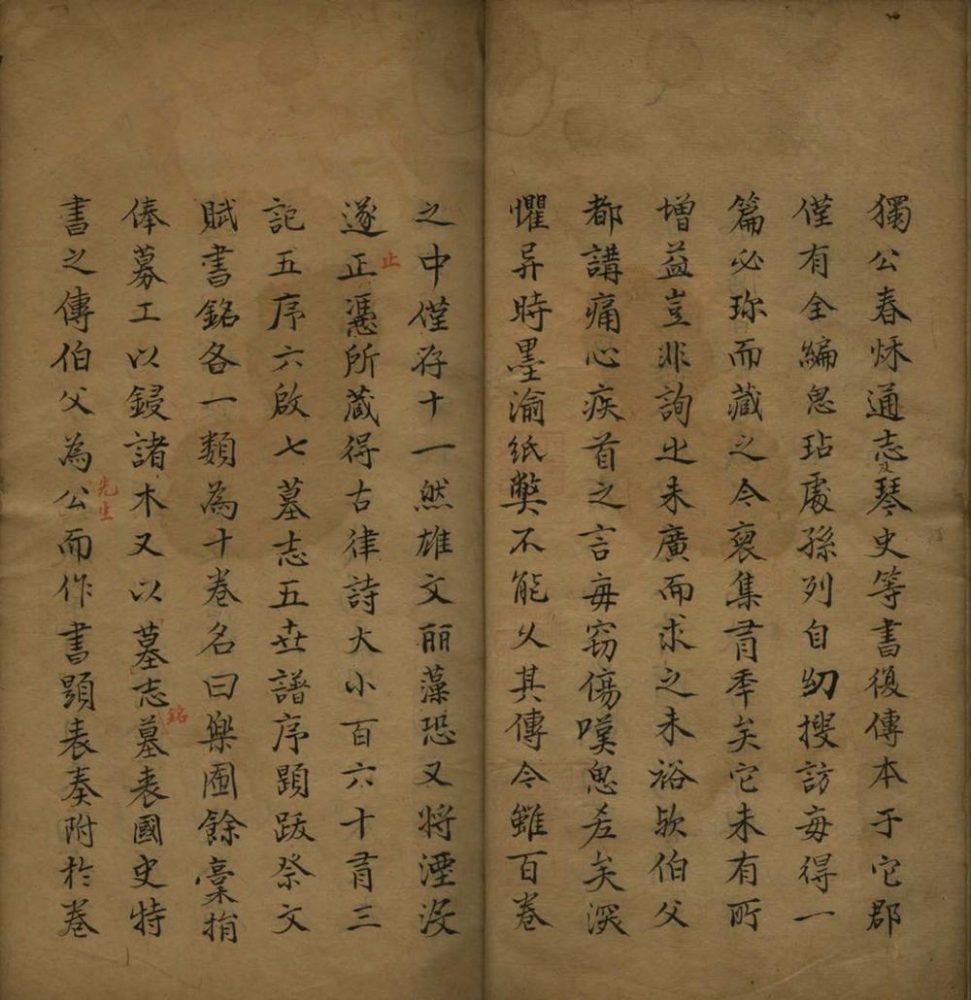 獨公春秌通志及琴史等書復傳本于它郡
僅有全編思玷處孫列自幼搜訪每得一
篇必珎而藏之今裒集有秊矣它未有所
增益豈非詢㞢未廣而求之未裕欤伯父
都講痛心疾首之言每窃傷嘆思忞矣深
懼异時墨渝紙弊不能乆其傳今雖百卷
之中僅存十一然雄文丽藻恐又将湮没
遂正止慿所蔵得古律詩大小百六十有三
記五序六啟七墓志五世譜序題跋祭文
賦書銘各一類為十卷名曰樂圃餘槀捐
俸募工以鋟諸木又以墓志銘墓表國史特
書之傳伯父為公先生而作書題表奏附扵卷